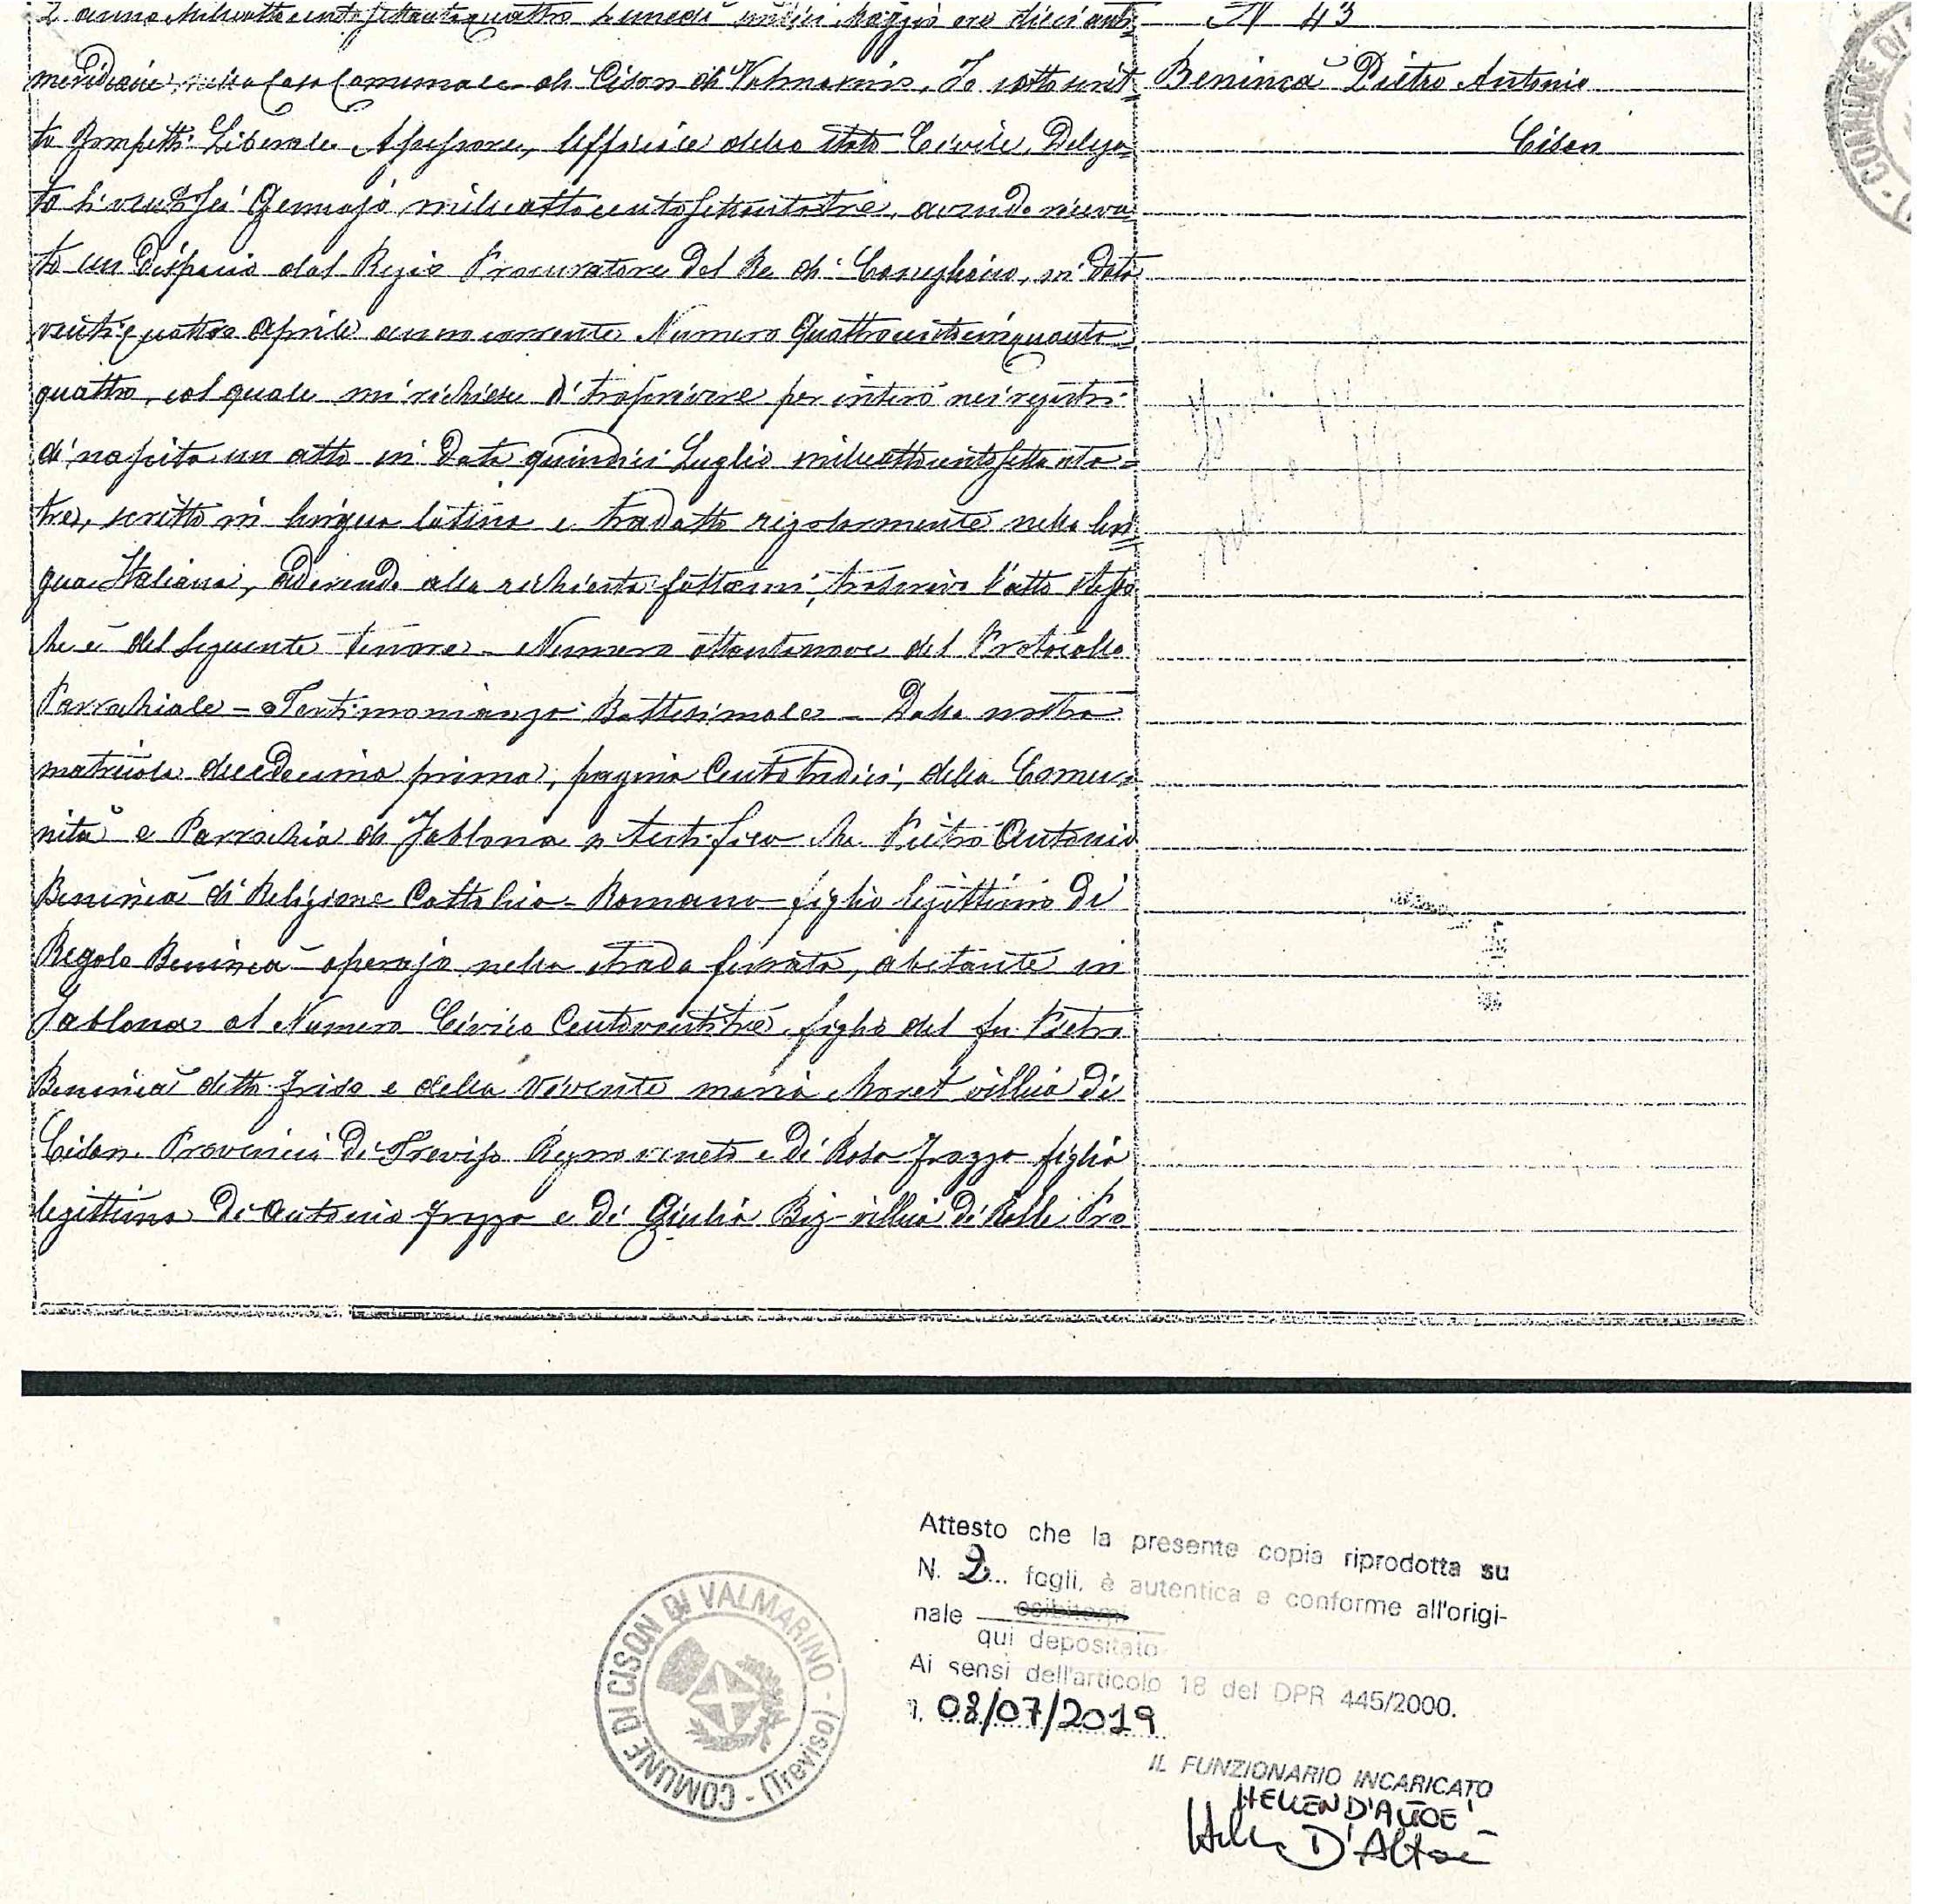 L'anno Milleottocentosettantaquattro lunedì undici Maggio ore dieci anti=
meridiane, nella Casa Comunale di Cison di Valmarino. Io sottoscrit=
to Rompetti Liberale Assessore, Uffiziale dello Stato Civile, Delega=
to li ventisei Gennajo milleottocentosettantatre, avendo ricevu=
to un Dispaccio dal Regio Procuratore del Re di Conegliano, in data
ventiquattro Aprile anno corrente Numero Quattrocentocinquanta=
quattro, col quale mi richiese di trascrivere per intero nei registri
di nascita un atto in Data quindici Luglio milleottocentosettanta=
tre, scritto in lingua latina e tradotto regolarmente nella lin=
gua Italiana, aderendo alla richiesta fattami, trascrivo l'atto stesso
che è del seguente tenore - Numero ottantanove del Protocollo
Parrochiale - Testimonianza Battesimale - Dalla nostra
matricola undecima prima, pagina Centotredici, della Comu=
nità e Parrochia di Jablona si testifica che Pietro Antonio
Beninca di Religione Cattolico-Romano figlio legittimo di
Regolo Beninca operajo nella strada ferrata, abitante in
Jablona al Numero Civico Centoventitre figlio del fu Pietro
Beninca detto Friso e della vivente maria Moret villica di
Cison Provincia di Treviso Regno veneto e di Rosa Frezza figlia
legittima di Antonio Frezza e di Giulia Biz villica di Rolle Pro
N 43
Beninca Pietro Antonio
Cison
COMUNE DI
COMUNE DI CISON DI VALMARINO - (Treviso) -
Attesto che la presente copia riprodotta su
N. 2... fogli, è autentica e conforme all'origi-
nale esibitomi
qui depositato
Ai sensi dell'articolo 18 del DPR 445/2000.
lì, 08/07/2019
IL FUNZIONARIO INCARICATO
HELLEN D'ALTOE'
Hellen D'Altoè